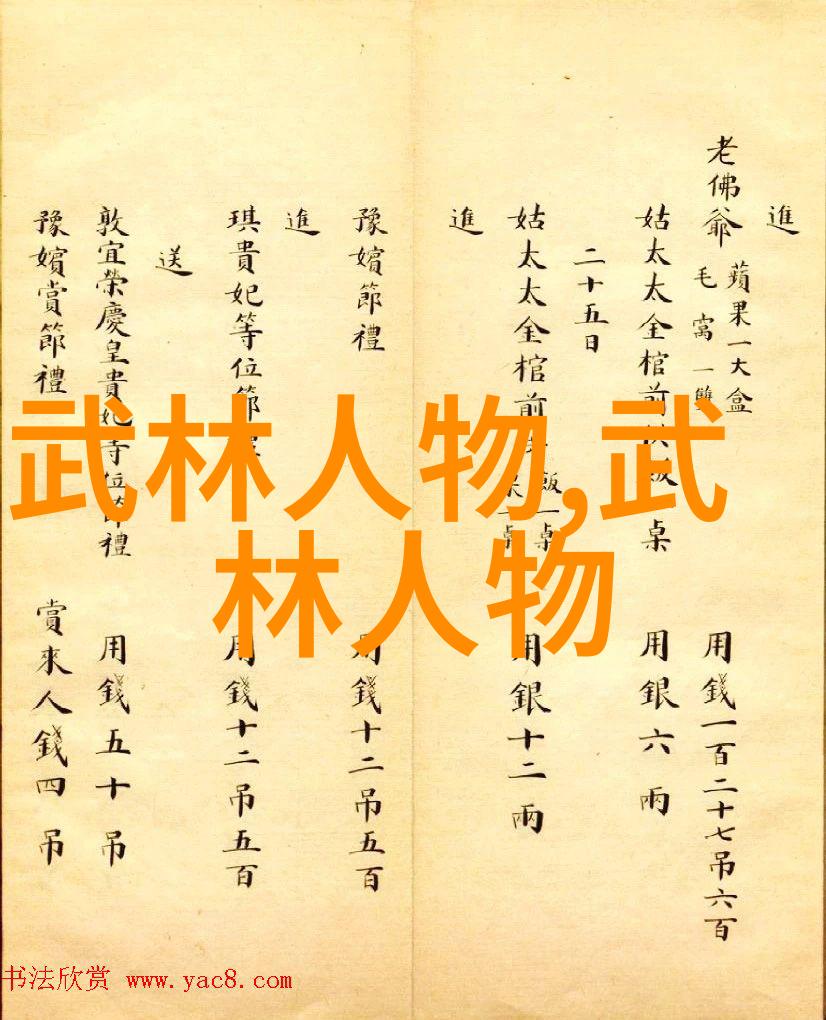 進
老佛爺 蘋果一大盒 毛窩一雙 用錢一百二十七吊六百
姑太太金棺前 飯 桌 用銀六兩
二十五日
姑太太金棺前 飯一桌 一桌 用銀十二兩
進
豫嬪節禮 用錢十二吊五百
進
琪貴妃等位節 用錢十二吊五百
送
敦宜榮慶皇貴妃等位節禮 用錢五十吊
豫嬪賞節禮 賞來人錢四吊
武林人物,武
林人物
书法欣赏 www.yac8.com